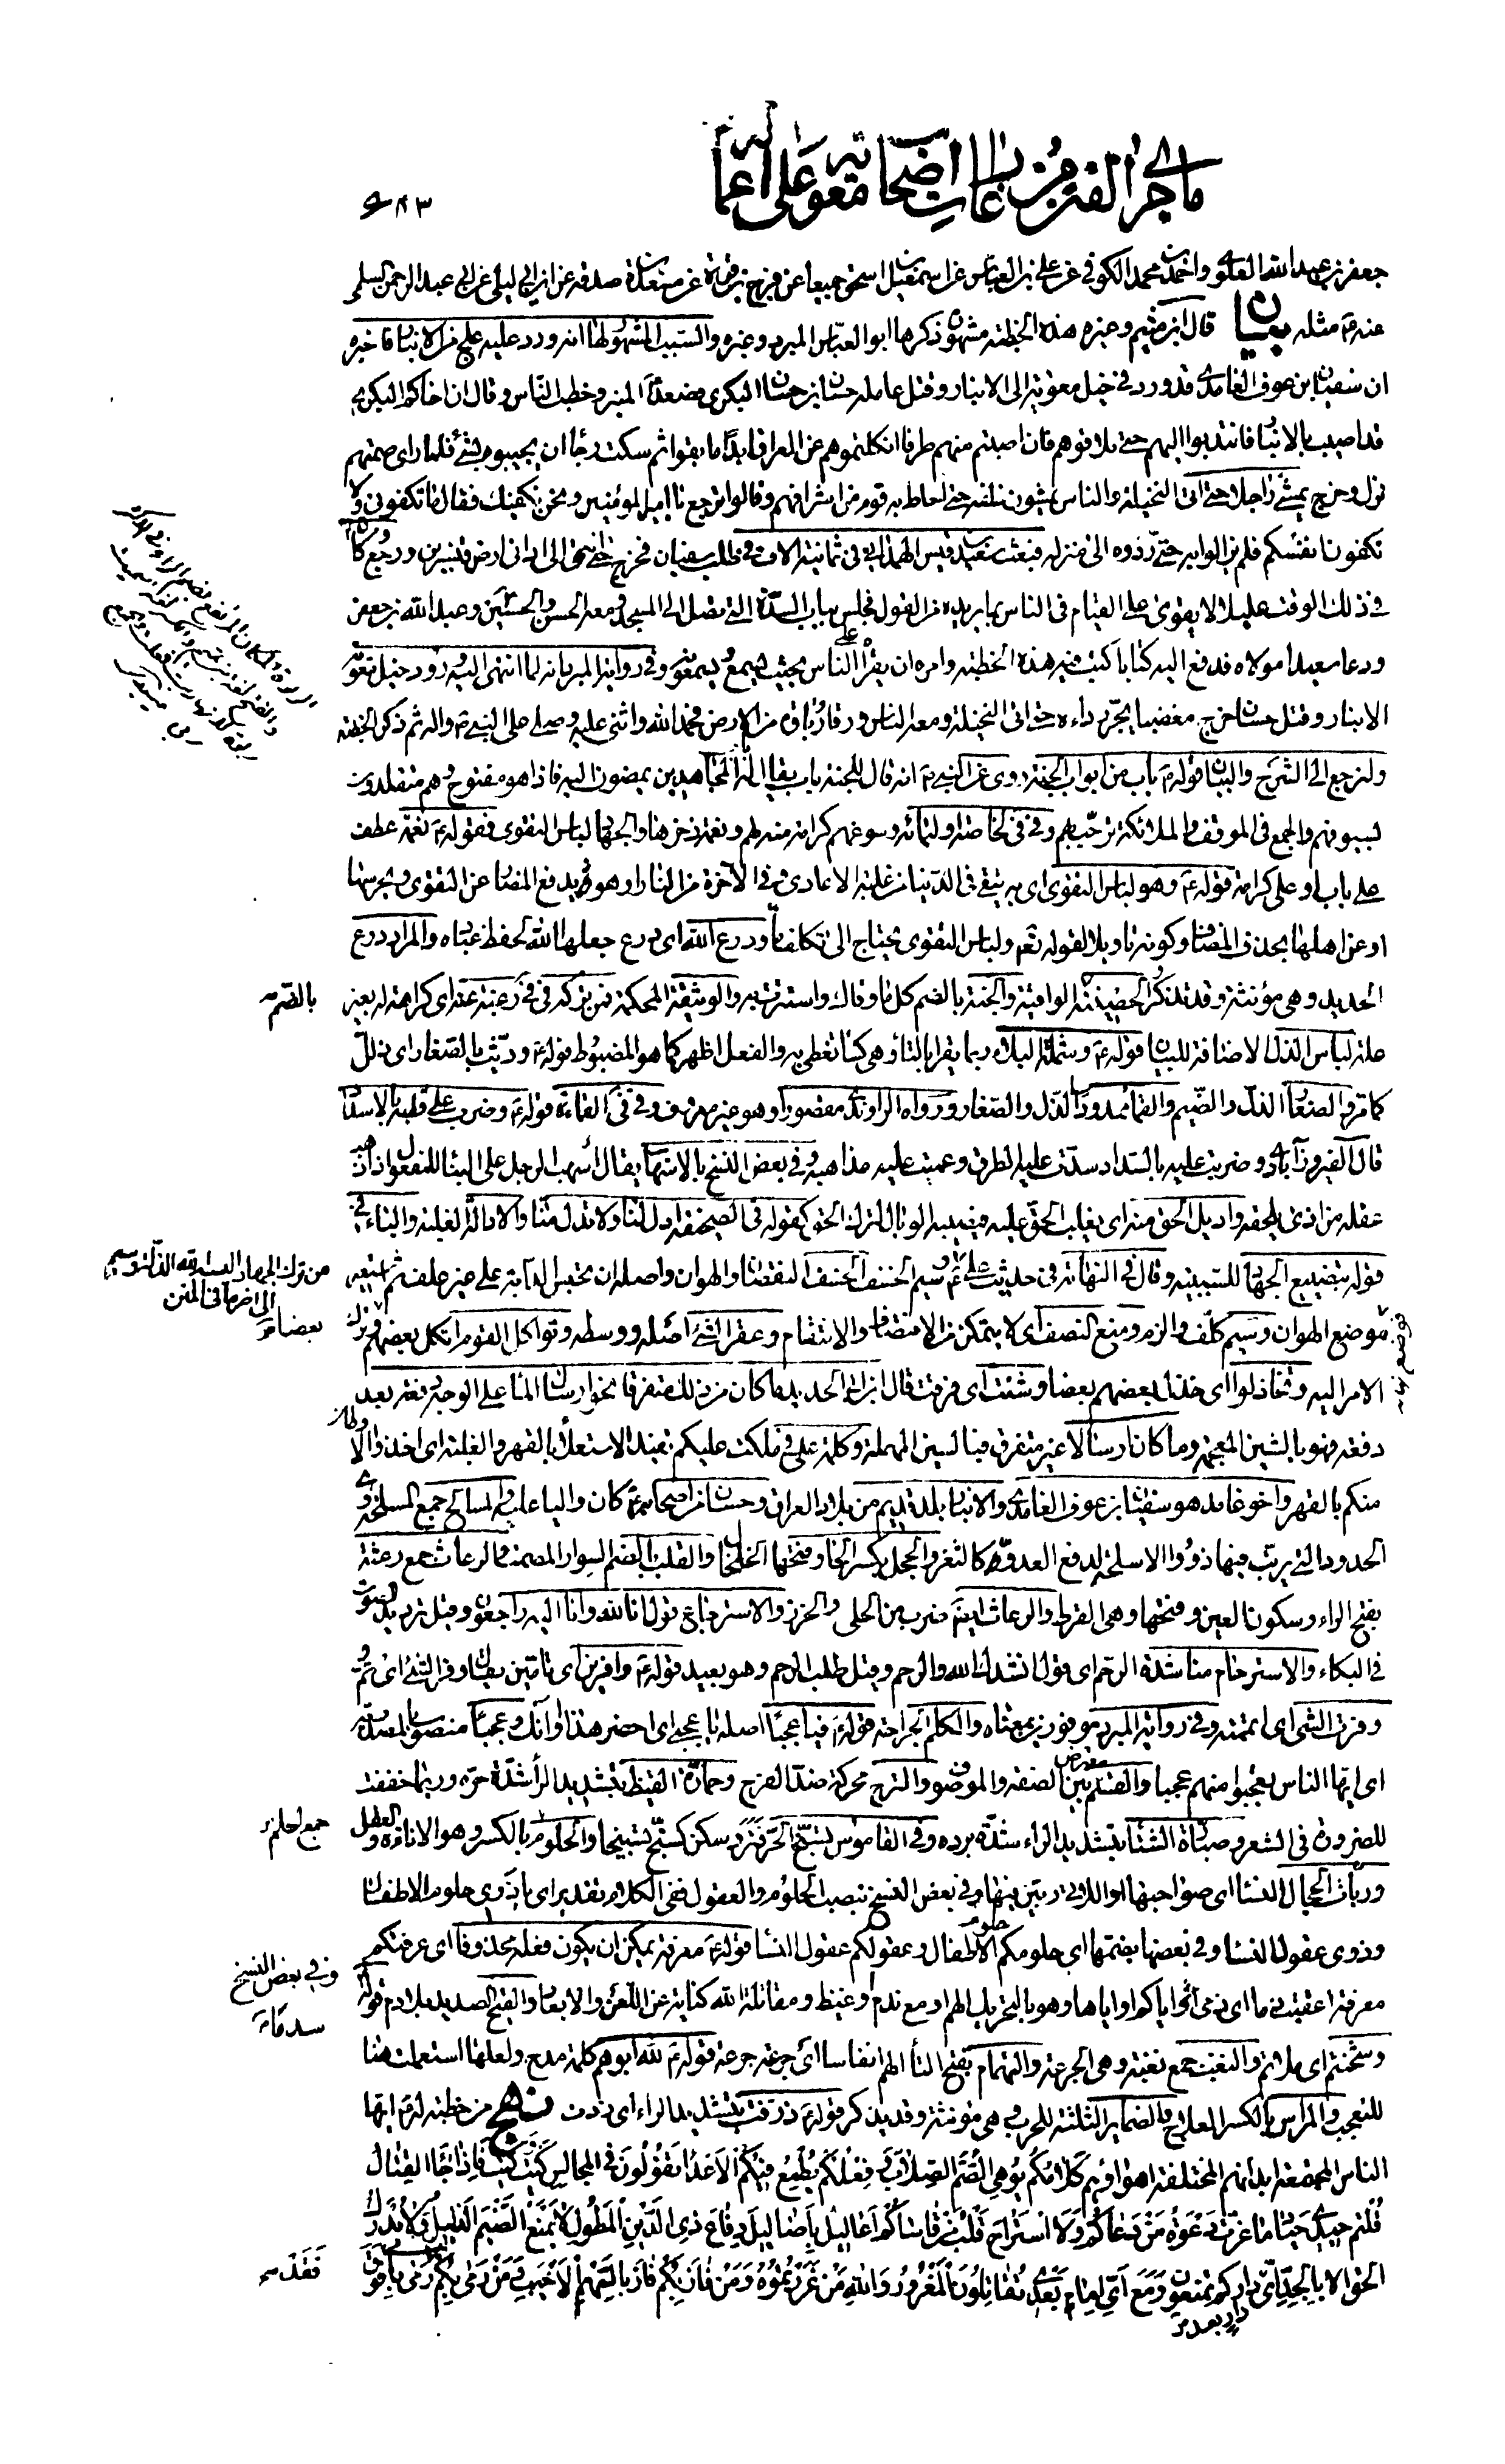 ماجرى الفتن من غارات اصحاب معوية على اعماله
٦٨٣
جعفر بن عبد الله العلوي واحمد بن محمد الكوفي عن علي بن العباس عن اسمعيل بن اسحق جميعا عن فرج بن قرة عن مسعدة بن صدقة عن ابن ابي ليلى عن ابي عبد الرحمن السلمي
عنه ع مثله بيان قال ابن ميثم وغيره هذه الخطبة مشهورة ذكرها ابو العباس المبرد وغيره والسبب المشهور لها انه ورد عليه علج من الانبار فاخبره
ان سفين ابن عوف الغامدي قد ورد في خيل معوية الى الانبار وقتل عامله حسان بن حسان البكري فصعد ع المنبر وخطب الناس وقال ان اخاكم البكري
قد اصيب بالانبار فانتدبوا اليهم حتى تلاقوهم فان اصبتم منهم طرفا انكلتموهم عن العراق ابدا ما بقوا ثم سكت رجاء ان يجيبوه بشئ فلما راى صمتهم
نزل وخرج يمشي راجلا حتى اتى النخيلة والناس يمشون خلفه حتى احاط به قوم من اشرافهم وقالوا ترجع يا امير المؤمنين ونحن نكفيك فقال ما تكفوني ولا
تكفون انفسكم فلم يزالوا به حتى ردوه الى منزله فبعث سعيد بن قيس الهمداني في ثمانية الاف في طلب سفيان فخرج حتى انتهى الى اداني ارض قنسرين ورجع وكان ع
في ذلك الوقت عليلا لا يقوى على القيام في الناس بما يريده من القول فجلس بباب السدة التي تصل الى المسجد ومعه الحسن والحسين وعبد الله بن جعفر
ودعا سعيدا مولاه فدفع اليه كتابا كتب فيه هذه الخطبة وامره ان يقرأ على الناس بحيث يسمع ويسمعونه وفي رواية المبرد انه لما انتهى اليه ورود خيل معوية
الانبار وقتل حسان خرج مغضبا يجر رداءه حتى اتى النخيلة ومعه الناس ورقا رباوة من الارض فحمد الله واثنى عليه وصلى على النبي ص واله ثم ذكر الخطبة
ولنرجع الى الشرح والبيان قوله ع باب من ابواب الجنة روي عن النبي ص انه قال للجنة باب يقال له باب المجاهدين يمضون اليه فاذا هو مفتوح وهم متقلدون
لسيوفهم والجمع في الموقف والملائكة ترحب بهم وفي في لخاصة اوليائه وسوغهم كرامة منه لهم ونعمة ذخرها والجهاد لباس التقوى فقوله ع نعمة عطف
على باب او على كرامة قوله ع وهو لباس التقوى اي به يتقى في الدنيا من غلبة الاعادي وفي الآخرة من النار او هو يدفع المضار عن التقوى ويحرسها
او عن اهلها بحذف المضاف وكونه تاويلا لقوله تعالى ولباس التقوى يحتاج الى تكلف ما ودرع الله اي درع جعلها الله لحفظ عباده والمراد درع
الحديد وهي مؤنثة وقد تذكر الحصينة الواقية والجنة بالضم كل ما وقاك واستترت به والوثيقة المحكمة فمن تركه في في رغبة عنه اي كراهة له بغير
بالضم
علة لباس الذل الاضافة للبيان قوله ع وشملة البلاء ربما يقرا بالتاء وهي كساء تغطى به والفعل اظهر كما هو المضبوط قوله ع وديث بالصغار اي ذلل
كما مر والصغار الذل والضيم والقماء ممدودا الذل والصغار ورواه الراوندي مقصورا وهو غير معروف وفي في القماءة قوله ع وضرب على قلبه بالاسداد
قال الفيروزآبادي وضربت عليه بالسداد سدت عليه الطرق وعميت عليه مذاهبه وفي بعض النسخ بالاسهاب يقال أسهب الرجل على البناء للمفعول اذا ذهب
عقله من اذى يلحقه واديل الحق منه اي يغلب الحق عليه فيصيبه الوبال لترك الحق كقوله في الصحيفة ادل لنا ولا تدل منا والادالة الغلبة والباء في
قوله بتضييع الجهاد للسببية وقال في النهاية في حديث علي ع وسيم الخسف الخسف النقصان والهوان واصله ان تحبس الدابة على غير علف ثم استعير
من ترك الجهاد البسه الله الذلة وسيم
الى اخر ما في المتن
موضع الهوان وسيم كلف والزم ومنع النصف اي لا يتمكن من الانتصاف والانتقام وعقر الشئ اصله ووسطه وتواكل القوم اتكل بعضهم وترك
بعضا
الامر اليه وتخاذلوا اي خذل بعضهم بعضا وشنت اي فرقت قال ابن ابي الحديد ما كان من ذلك متفرقا نحو ارسال الماء على الوجه دفعة بعد
دفعة فهو بالشين المعجمة وما كان ارسالا غير متفرق فبالسين المهملة وكلمة على في ملكت عليكم تفيد الاستعلاء بالقهر والغلبة اي اخذ والاوطان
منكم بالقهر واخو غامد هو سفيان بن عوف الغامدي والانبار بلد قديم من بلاد العراق وحسان من اصحابه ع كان واليا عليه والمسالح جمع المسلحة وهي
الحدود التي يرتب فيها ذوو الاسلحة لدفع العدو كالثغر والحجل بكسر الحاء وفتحها الخلخال والقلب بالضم السوار المصمت والرعاث جمع رعثة
بفتح الراء وسكون العين وفتحها وهي القرط والرعاث ايضا ضرب من الحلي والخرز والاسترجاع قول انا لله وانا اليه راجعون وقيل ترديد الصوت
في البكاء والاسترحام مناشدة الرحم اي قول انشدك الله والرحم وقيل طلب الرحم وهو بعيد قوله ع وافرين اي تامين يقال وفر الشئ اي تم و
وفرت الشئ اي اتممته وفي رواية المبرد موفورين بمعناه والكلم الجراحة قوله ع فيا عجبا اصله يا عجبي اي احضر هذا اوانك وعجبا منصوب بالمصدرية
اي ايها الناس تعجبوا منهم عجبا والقسم معترض بين الصفة والموصوف والترح محركة ضد الفرح وحمارة القيظ بتشديد الراء شدة حره وربما خففت
للضرورة في الشعر وصبارة الشتاء بتشديد الراء شدة برده وفي القاموس تسبخ الحر فتر وسكن كسبخ تسبيخا والحلوم بالكسر وهو الاناءة والعقل
جمع الحلم
وربات الحجال النساء اي صواحبها او اللاتي ربين فيها وفي بعض النسخ بنصب الحلوم والعقول ففي الكلام تقدير اي يا ذوي حلوم الاطفال
وذوي عقول النساء وفي بعضها بضمها اي حلومكم حلوم الاطفال وعقولكم عقول النساء قوله ع معرفة يمكن ان يكون فعله محذوفا اي عرفتكم
معرفة اعقبت ندما اي ندمي اياكم او اياها وهو بالتحريك الهم او مع ندم او غيظ ومقاتلة الله كناية عن اللعن والابعاد والقيح الصديد بلا دم قوله
وفي بعض النسخ
سدمًا
وشحنتم اي ملأتم والنغب جمع نغبة وهي الجرعة والتهمام بفتح التاء الهم انفاسا اي جرعة جرعة قوله ع لله ابوهم كلمة مدح ولعلها استعملت هنا
للتعجب والمراس بالكسر العلاج والضمائر الثلثة للحرب وهي مؤنثة وقد يذكر قوله ع ذرفت بتشديد الراء اي زدت نهج من خطبة له ع ايها
الناس المجتمعة ابدانهم المختلفة اهواؤهم كلامكم يوهي الصم الصلاب وفعلكم يطمع فيكم الاعداء تقولون في المجالس كيت وكيت فاذا جاء القتال
قلتم حيدي حياد ما عزت دعوة من دعاكم ولا استراح قلب من قاساكم اعاليل باضاليل دفاع ذي الدين المطول لا يمنع الضيم الذليل ولا يدرك
الحق الا بالجد اي دار بعد داركم تمنعون ومع اي امام بعدي تقاتلون المغرور والله من غررتموه ومن فاز بكم فاز بالسهم الاخيب ومن رمى بكم رمى بافوق
فقد